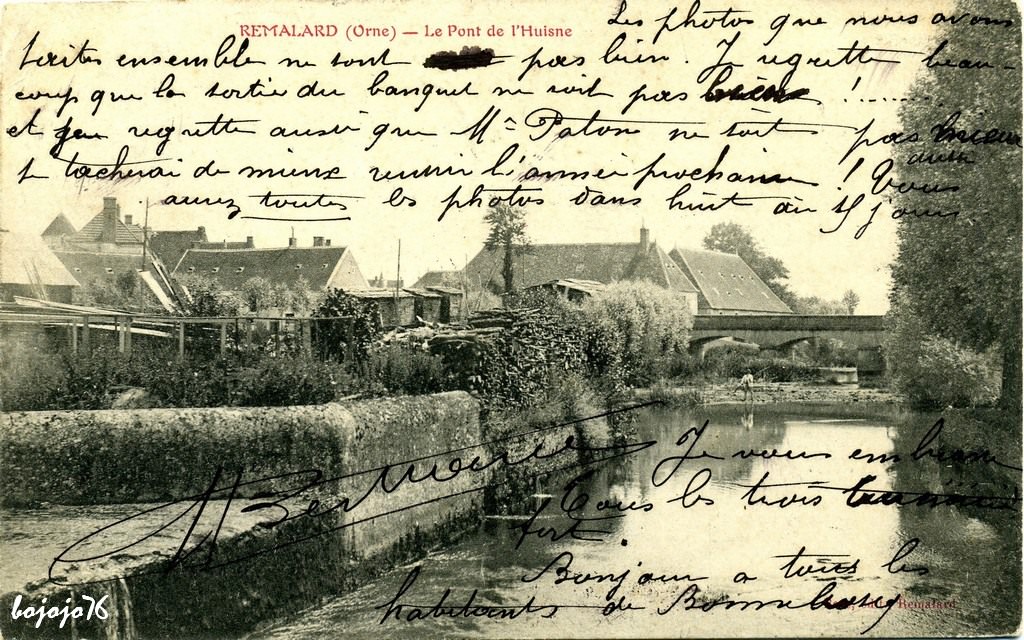 REMALARD (Orne) — Le Pont de l'Huisne
Les photos que nous avons
faites ensemble ne sont pas bien. Je regrette beau-
coup que la sortie du banquet ne soit pas bien !........
et regrette aussi que Mr ne soit pas
je tacherai de mieux l'année prochaine ! Vous
aurez toutes les photos dans huit ou 15 jours
Je vous embrasse
Tous les trois
fort.
Bonjour a tous les
habitants de
Remalard
bojojo76